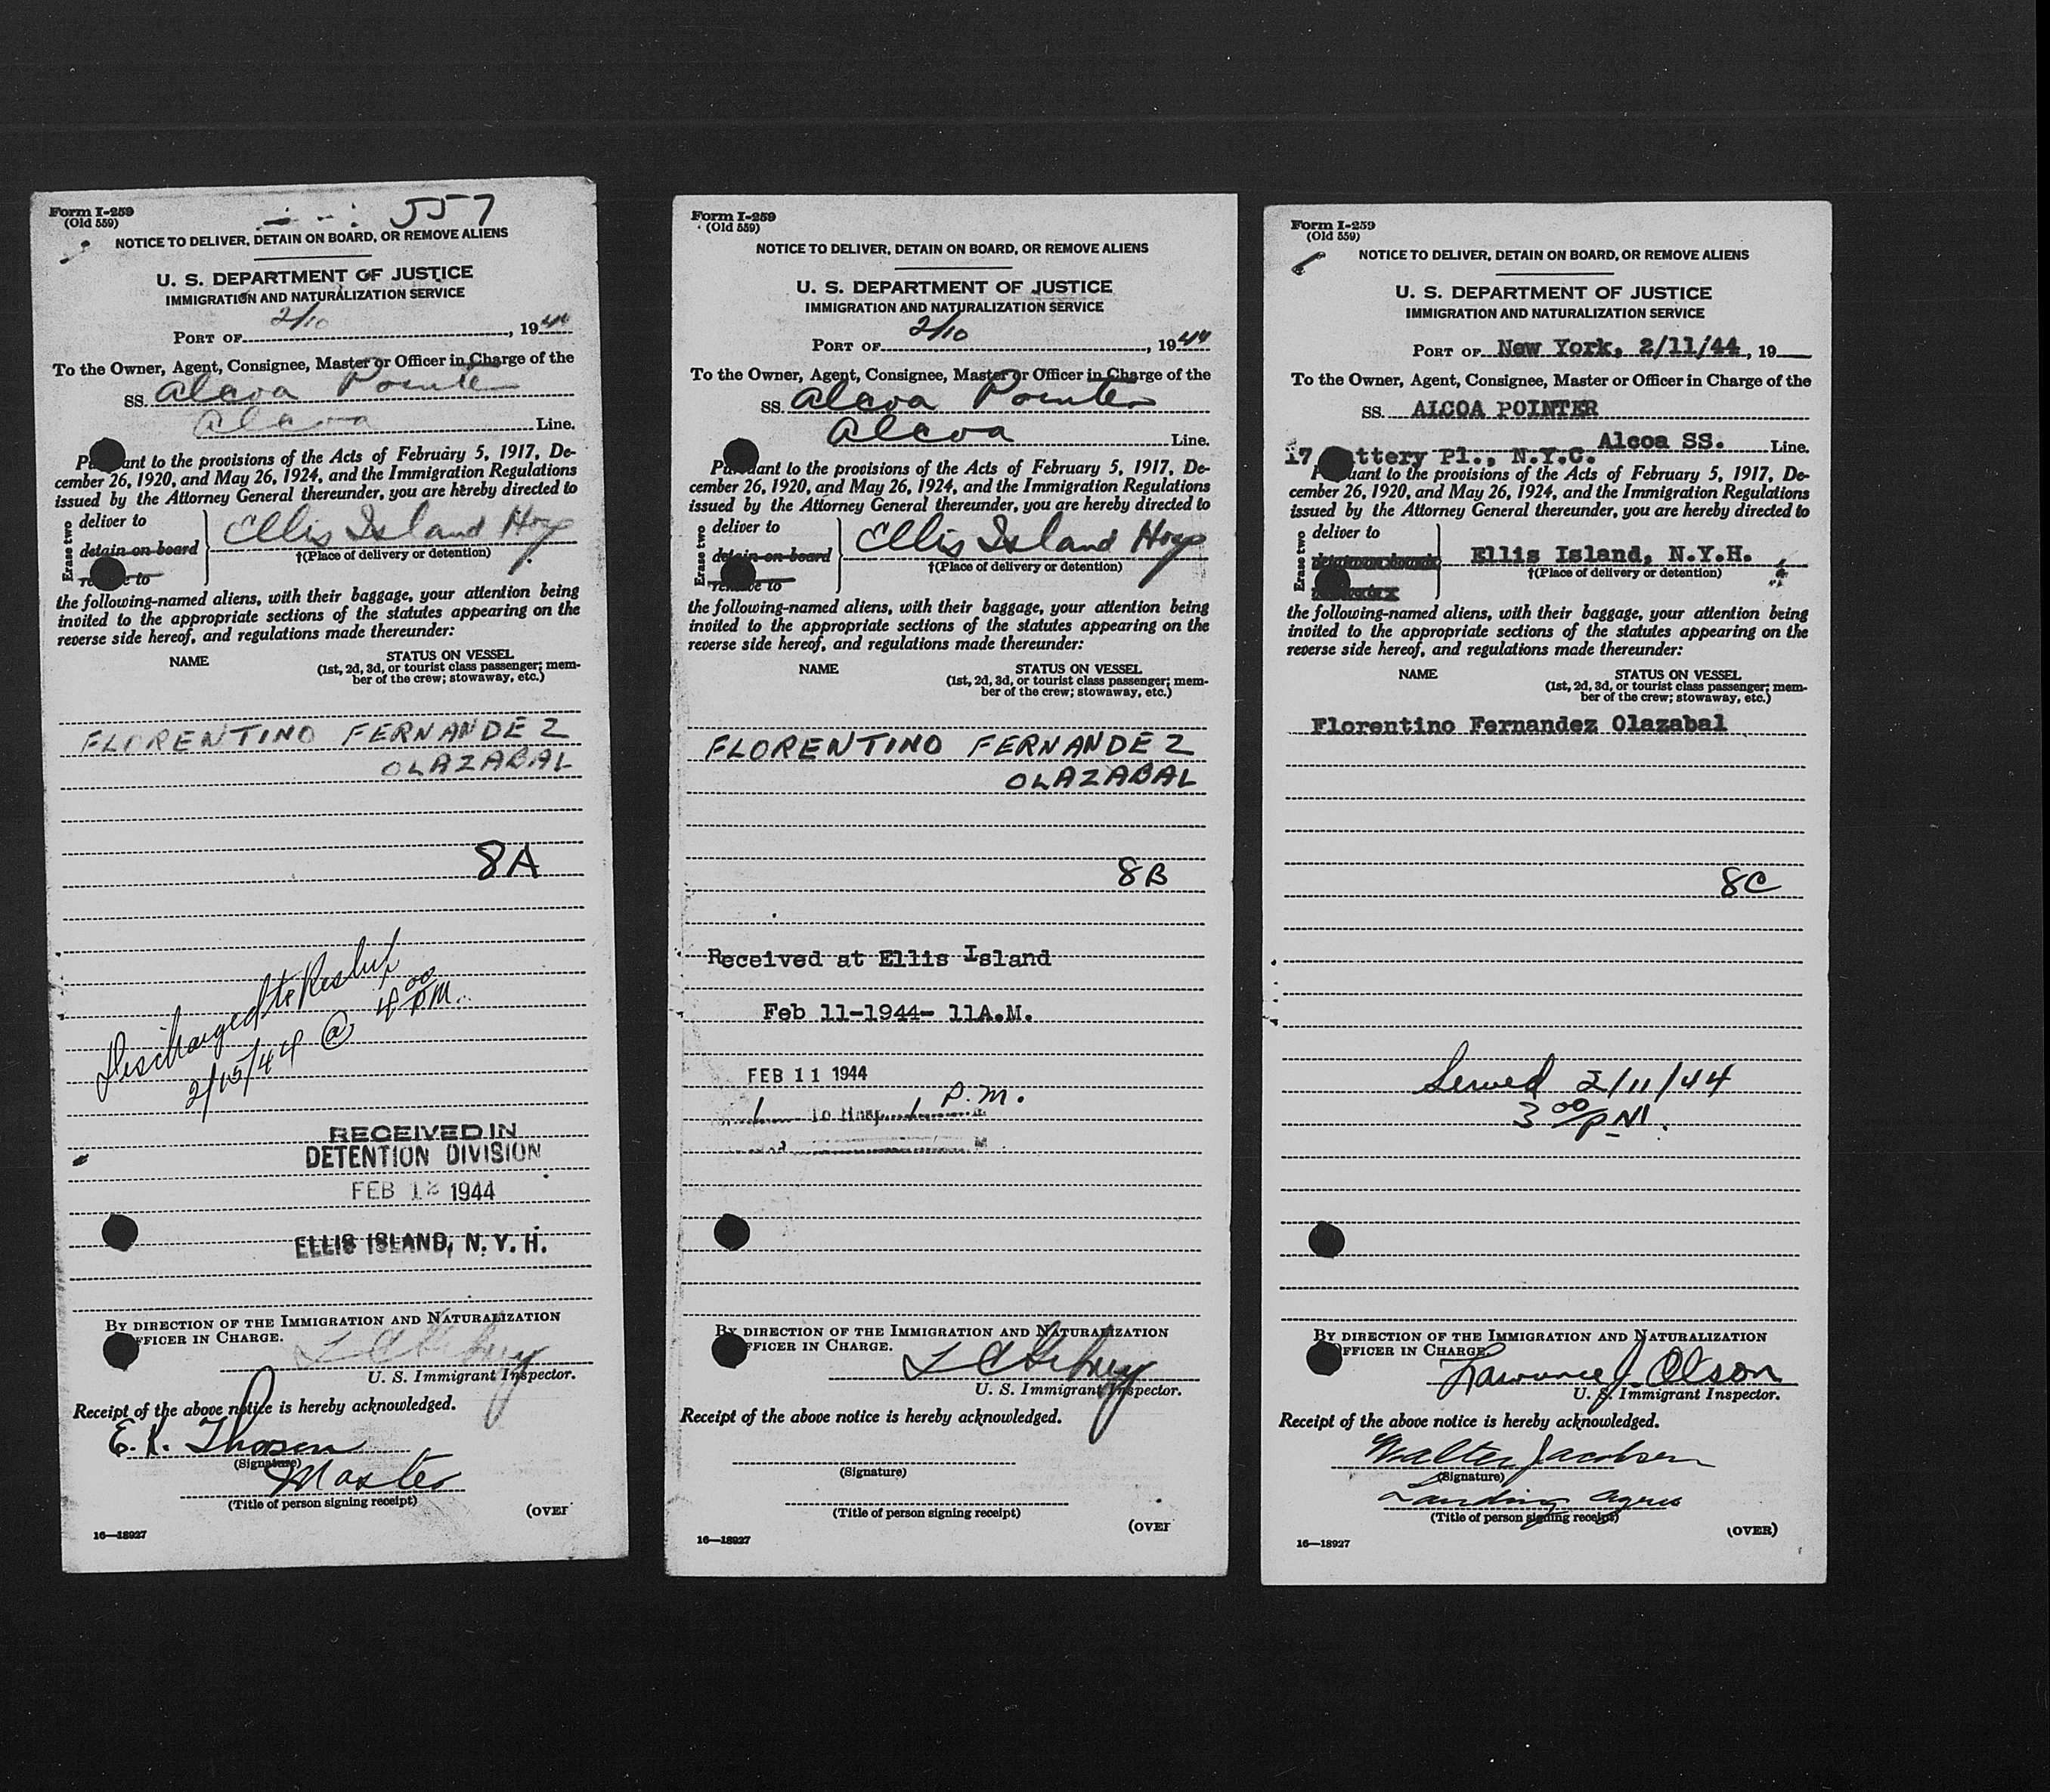 Form I-259
(Old 559)
557
NOTICE TO DELIVER, DETAIN ON BOARD, OR REMOVE ALIENS
U. S. DEPARTMENT OF JUSTICE
IMMIGRATION AND NATURALIZATION SERVICE
PORT OF 2/10, 1944
To the Owner, Agent, Consignee, Master or Officer in Charge of the
SS. Alcoa Pointer
Alcoa Line.
ant to the provisions of the Acts of February 5, 1917, De-
cember 26, 1920, and May 26, 1924, and the Immigration Regulations
issued by the Attorney General thereunder, you are hereby directed to
Erase two
deliver to
detain on board
Ellis Island Hosp
†(Place of delivery or detention)
the following-named aliens, with their baggage, your attention being
invited to the appropriate sections of the statutes appearing on the
reverse side hereof, and regulations made thereunder:
NAME STATUS ON VESSEL
(1st, 2d, 3d, or tourist class passenger; mem-
ber of the crew; stowaway, etc.)
FLORENTINO FERNANDEZ
OLAZABAL
8A
Discharged to Reship
2/15/44 @ 4:00 P.M.
RECEIVED IN
DETENTION DIVISION
FEB 12 1944
ELLIS ISLAND, N. Y. H.
BY DIRECTION OF THE IMMIGRATION AND NATURALIZATION
FFICER IN CHARGE.
U. S. Immigrant Inspector.
Receipt of the above notice is hereby acknowledged.
E. K. Thorsen
(Signature)
Master
(Title of person signing receipt)
(OVER
16—18927
Form I-259
(Old 559)
NOTICE TO DELIVER, DETAIN ON BOARD, OR REMOVE ALIENS
U. S. DEPARTMENT OF JUSTICE
IMMIGRATION AND NATURALIZATION SERVICE
PORT OF 2/10, 1944
To the Owner, Agent, Consignee, Master or Officer in Charge of the
SS. Alcoa Pointer
Alcoa Line.
ant to the provisions of the Acts of February 5, 1917, De-
cember 26, 1920, and May 26, 1924, and the Immigration Regulations
issued by the Attorney General thereunder, you are hereby directed to
Erase two
deliver to
detain on board
Ellis Island Hosp
†(Place of delivery or detention)
the following-named aliens, with their baggage, your attention being
invited to the appropriate sections of the statutes appearing on the
reverse side hereof, and regulations made thereunder:
NAME STATUS ON VESSEL
(1st, 2d, 3d, or tourist class passenger; mem-
ber of the crew; stowaway, etc.)
FLORENTINO FERNANDEZ
OLAZABAL
8B
Received at Ellis Island
Feb 11-1944- 11A.M.
FEB 11 1944
1 To Hosp. 1 P.M.
BY DIRECTION OF THE IMMIGRATION AND NATURALIZATION
FFICER IN CHARGE.
U. S. Immigrant Inspector.
Receipt of the above notice is hereby acknowledged.
(Signature)
(Title of person signing receipt)
(OVER
16—18927
Form I-259
(Old 559)
NOTICE TO DELIVER, DETAIN ON BOARD, OR REMOVE ALIENS
U. S. DEPARTMENT OF JUSTICE
IMMIGRATION AND NATURALIZATION SERVICE
PORT OF New York, 2/11/44, 19
To the Owner, Agent, Consignee, Master or Officer in Charge of the
SS. ALCOA POINTER
Alcoa SS. Line.
17 ttery Pl., N.Y.C.
uant to the provisions of the Acts of February 5, 1917, De-
cember 26, 1920, and May 26, 1924, and the Immigration Regulations
issued by the Attorney General thereunder, you are hereby directed to
Erase two
deliver to
Ellis Island, N.Y.H.
†(Place of delivery or detention)
the following-named aliens, with their baggage, your attention being
invited to the appropriate sections of the statutes appearing on the
reverse side hereof, and regulations made thereunder:
NAME STATUS ON VESSEL
(1st, 2d, 3d, or tourist class passenger; mem-
ber of the crew; stowaway, etc.)
Florentino Fernandez Olazabal
8C
Served 2/11/44
3 00 PM.
BY DIRECTION OF THE IMMIGRATION AND NATURALIZATION
FFICER IN CHARGE.
Lawrence J. Olson
U. S. Immigrant Inspector.
Receipt of the above notice is hereby acknowledged.
Walter Jacobsen
(Signature)
Landing Agent
(Title of person signing receipt)
(OVER)
16—18927